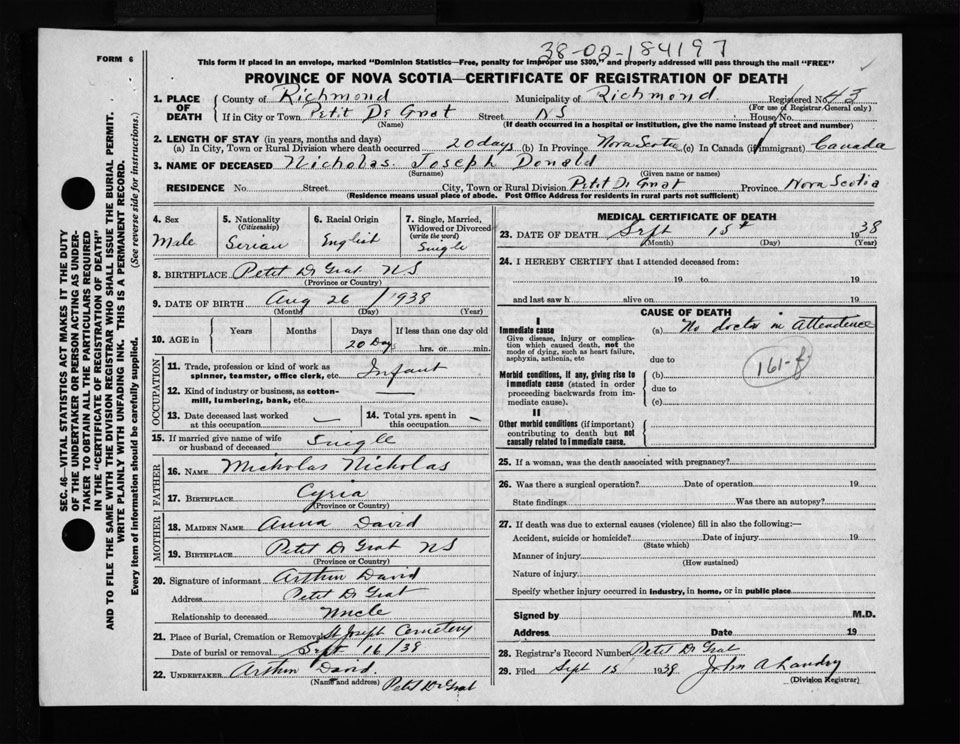 38-02-184197
FORM 6
This form if placed in an envelope, marked "Dominion Statistics—Free, penalty for improper use $300," and properly addressed will pass through the mail "FREE"
PROVINCE OF NOVA SCOTIA—CERTIFICATE OF REGISTRATION OF DEATH
1. PLACE OF DEATH
County of Richmond Municipality of Richmond Registered No. 43
(For use of Registrar-General only)
If in City or Town Petit De Grat Street NS House No.
(Name) (If death occurred in a hospital or institution, give the name instead of street and number)
2. LENGTH OF STAY (in years, months and days)
(a) In City, Town or Rural Division where death occurred 20 days (b) In Province Nova Scotia (c) In Canada (if immigrant) Canada
3. NAME OF DECEASED Nicholas Joseph Donald
(Surname) (Given name or names)
RESIDENCE No. Street City, Town or Rural Division Petit De Grat Province Nova Scotia
(Residence means usual place of abode. Post Office Address for residents in rural parts not sufficient)
SEC. 46—VITAL STATISTICS ACT MAKES IT THE DUTY
OF THE UNDERTAKER OR PERSON ACTING AS UNDER-
TAKER TO OBTAIN ALL THE PARTICULARS REQUIRED
IN THE "CERTIFICATE OF REGISTRATION OF DEATH"
AND TO FILE THE SAME WITH THE DIVISION REGISTRAR WHO SHALL ISSUE THE BURIAL PERMIT.
WRITE PLAINLY WITH UNFADING INK. THIS IS A PERMANENT RECORD.
Every item of information should be carefully supplied. (See reverse side for instructions.)
4. Sex
Male
5. Nationality
(Citizenship)
Serian
6. Racial Origin
English
7. Single, Married,
Widowed or Divorced
(write the word)
Single
8. BIRTHPLACE Petit D Grat NS
(Province or Country)
9. DATE OF BIRTH Aug 26 / 1938
(Month) (Day) (Year)
10. AGE in
Years
Months
Days
20 Days
If less than one day old
hrs. or min.
OCCUPATION
11. Trade, profession or kind of work as
spinner, teamster, office clerk, etc. Infant
12. Kind of industry or business, as cotton-
mill, lumbering, bank, etc. —
13. Date deceased last worked
at this occupation —
14. Total yrs. spent in
this occupation —
15. If married give name of wife
or husband of deceased Single
FATHER
16. NAME Micholas Nicholas
17. BIRTHPLACE Cyria
(Province or Country)
MOTHER
18. MAIDEN NAME Anna David
19. BIRTHPLACE Petit D Grat NS
(Province or Country)
20. Signature of informant Arthur David
Address Petit D Grat
Relationship to deceased Uncle
21. Place of Burial, Cremation or Removal St Joseph Cemetery
Date of burial or removal Sept 16/38
22. UNDERTAKER Arthur David
(Name and address) Petit D Grat
MEDICAL CERTIFICATE OF DEATH
23. DATE OF DEATH Sept 15th 1938
(Month) (Day) (Year)
24. I HEREBY CERTIFY that I attended deceased from:
19 to 19
and last saw h alive on 19
CAUSE OF DEATH
I
Immediate cause
Give disease, injury or complica-
tion which caused death, not the
mode of dying, such as heart failure,
asphyxia, asthenia, etc
(a) No doctor in Attendence
due to
161-f
Morbid conditions, if any, giving rise to
immediate cause (stated in order
proceeding backwards from im-
mediate cause).
(b)
due to
(c)
II
Other morbid conditions (if important)
contributing to death but not
causally related to immediate cause.
25. If a woman, was the death associated with pregnancy?
26. Was there a surgical operation? Date of operation 19
State findings Was there an autopsy?
27. If death was due to external causes (violence) fill in also the following:—
Accident, suicide or homicide? Date of injury 19
(State which)
Manner of injury
(How sustained)
Nature of injury
Specify whether injury occurred in industry, in home, or in public place
Signed by M.D.
Address Date 19
28. Registrar's Record Number Petit D Grat
29. Filed Sept 15 1938 John A Landry
(Division Registrar)